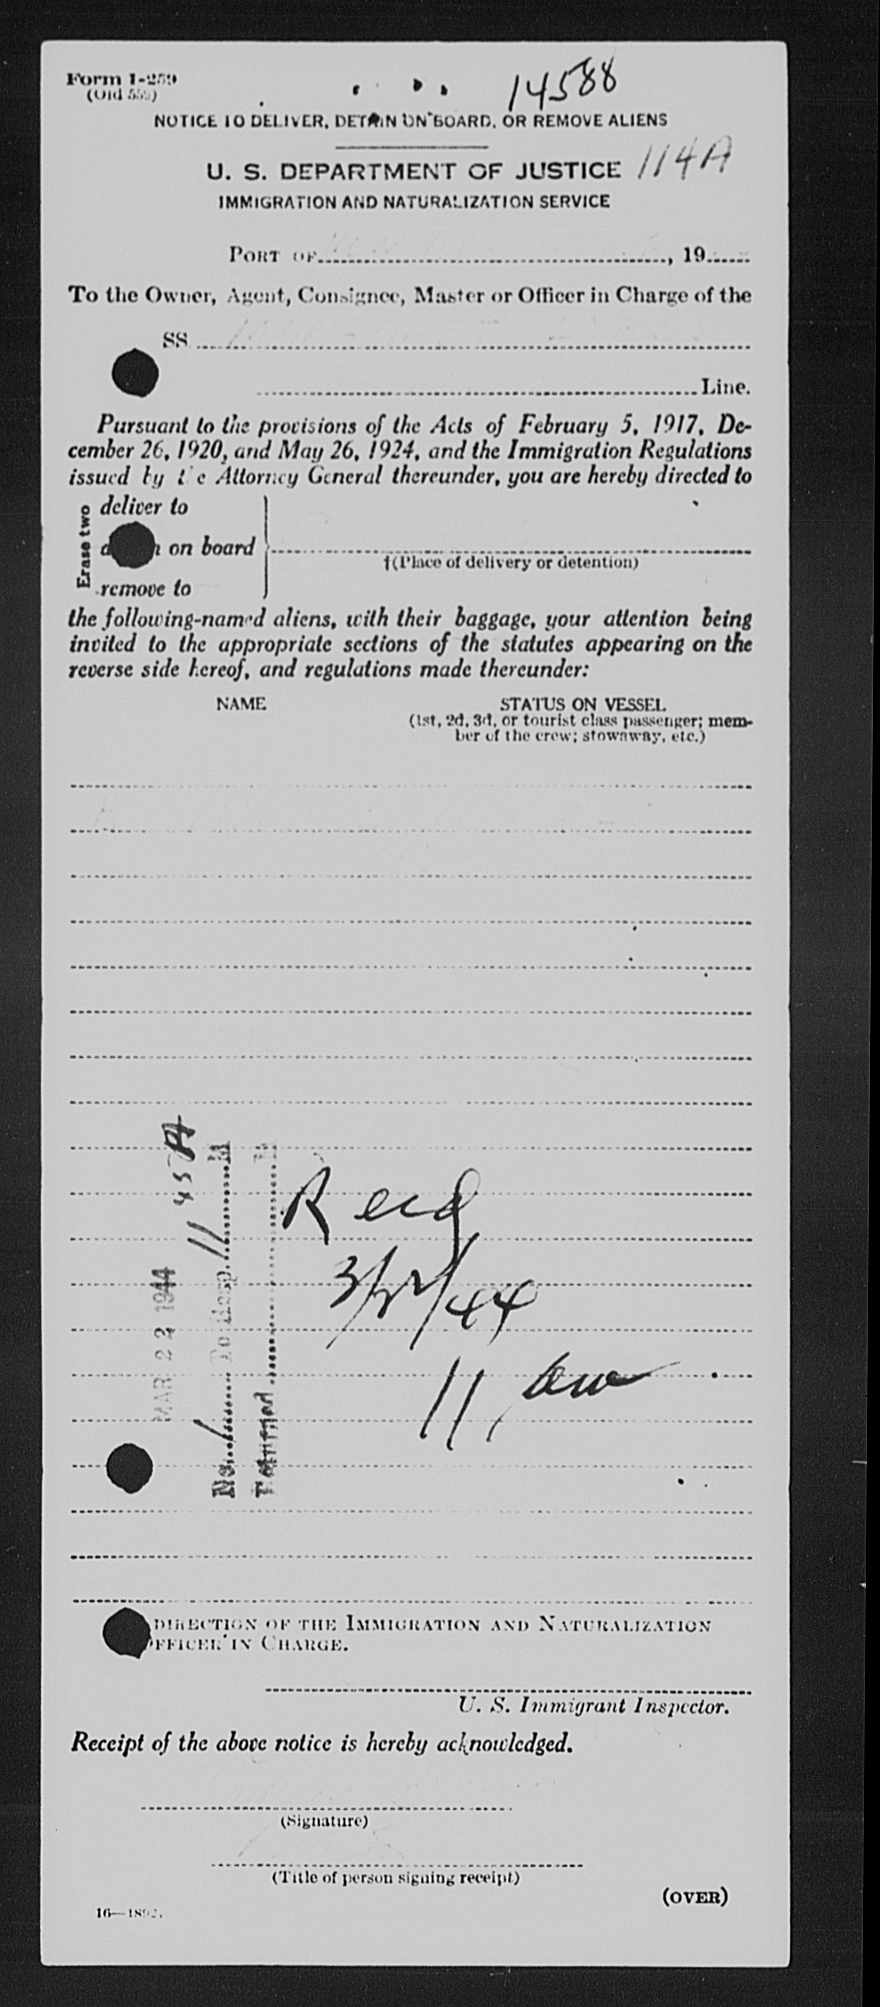 Form I-259
(Old 559)
14588
NOTICE TO DELIVER, DETAIN ON BOARD, OR REMOVE ALIENS
U. S. DEPARTMENT OF JUSTICE
114A
IMMIGRATION AND NATURALIZATION SERVICE
PORT OF , 19
To the Owner, Agent, Consignee, Master or Officer in Charge of the
SS
Line.
Pursuant to the provisions of the Acts of February 5, 1917, De-
cember 26, 1920, and May 26, 1924, and the Immigration Regulations
issued by the Attorney General thereunder, you are hereby directed to
Erase two
deliver to
on board
†(Place of delivery or detention)
remove to
the following-named aliens, with their baggage, your attention being
invited to the appropriate sections of the statutes appearing on the
reverse side hereof, and regulations made thereunder:
NAME
STATUS ON VESSEL
(1st, 2d, 3d, or tourist class passenger; mem-
ber of the crew; stowaway, etc.)
MAR 22 1944
11 45 A
No. 1 To Hosp. 11 M
Returned M
Recd
3/22/44
11
DIRECTION OF THE IMMIGRATION AND NATURALIZATION
OFFICER IN CHARGE.
U. S. Immigrant Inspector.
Receipt of the above notice is hereby acknowledged.
(Signature)
(Title of person signing receipt)
(OVER)